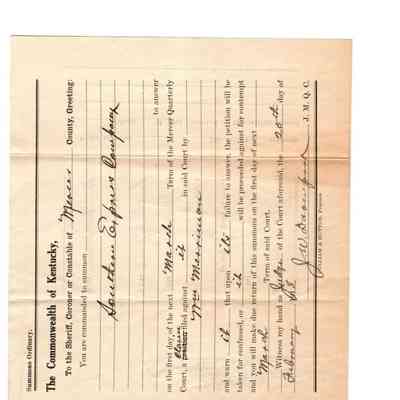 Summons Ordinary.
The Commonwealth of Kentucky,
To the Sheriff, Coroner or Constable of Mercer County, Greeting:
You are commanded to summon
Southern Express Company
to answer
on the first day, of the next March Term of the Mercer Quarterly
Court, a claim petition filed against it in said Court by
Wm Merriman
and warn it that upon its failure to answer, the petition will be
taken for confessed, or it will be proceeded against for contempt
and you will make due return of this summons on the first day of next
March Term of said Court.
Witness my hand as Judge of the Court aforesaid, the 20th day of
February
J. M. Q. C.